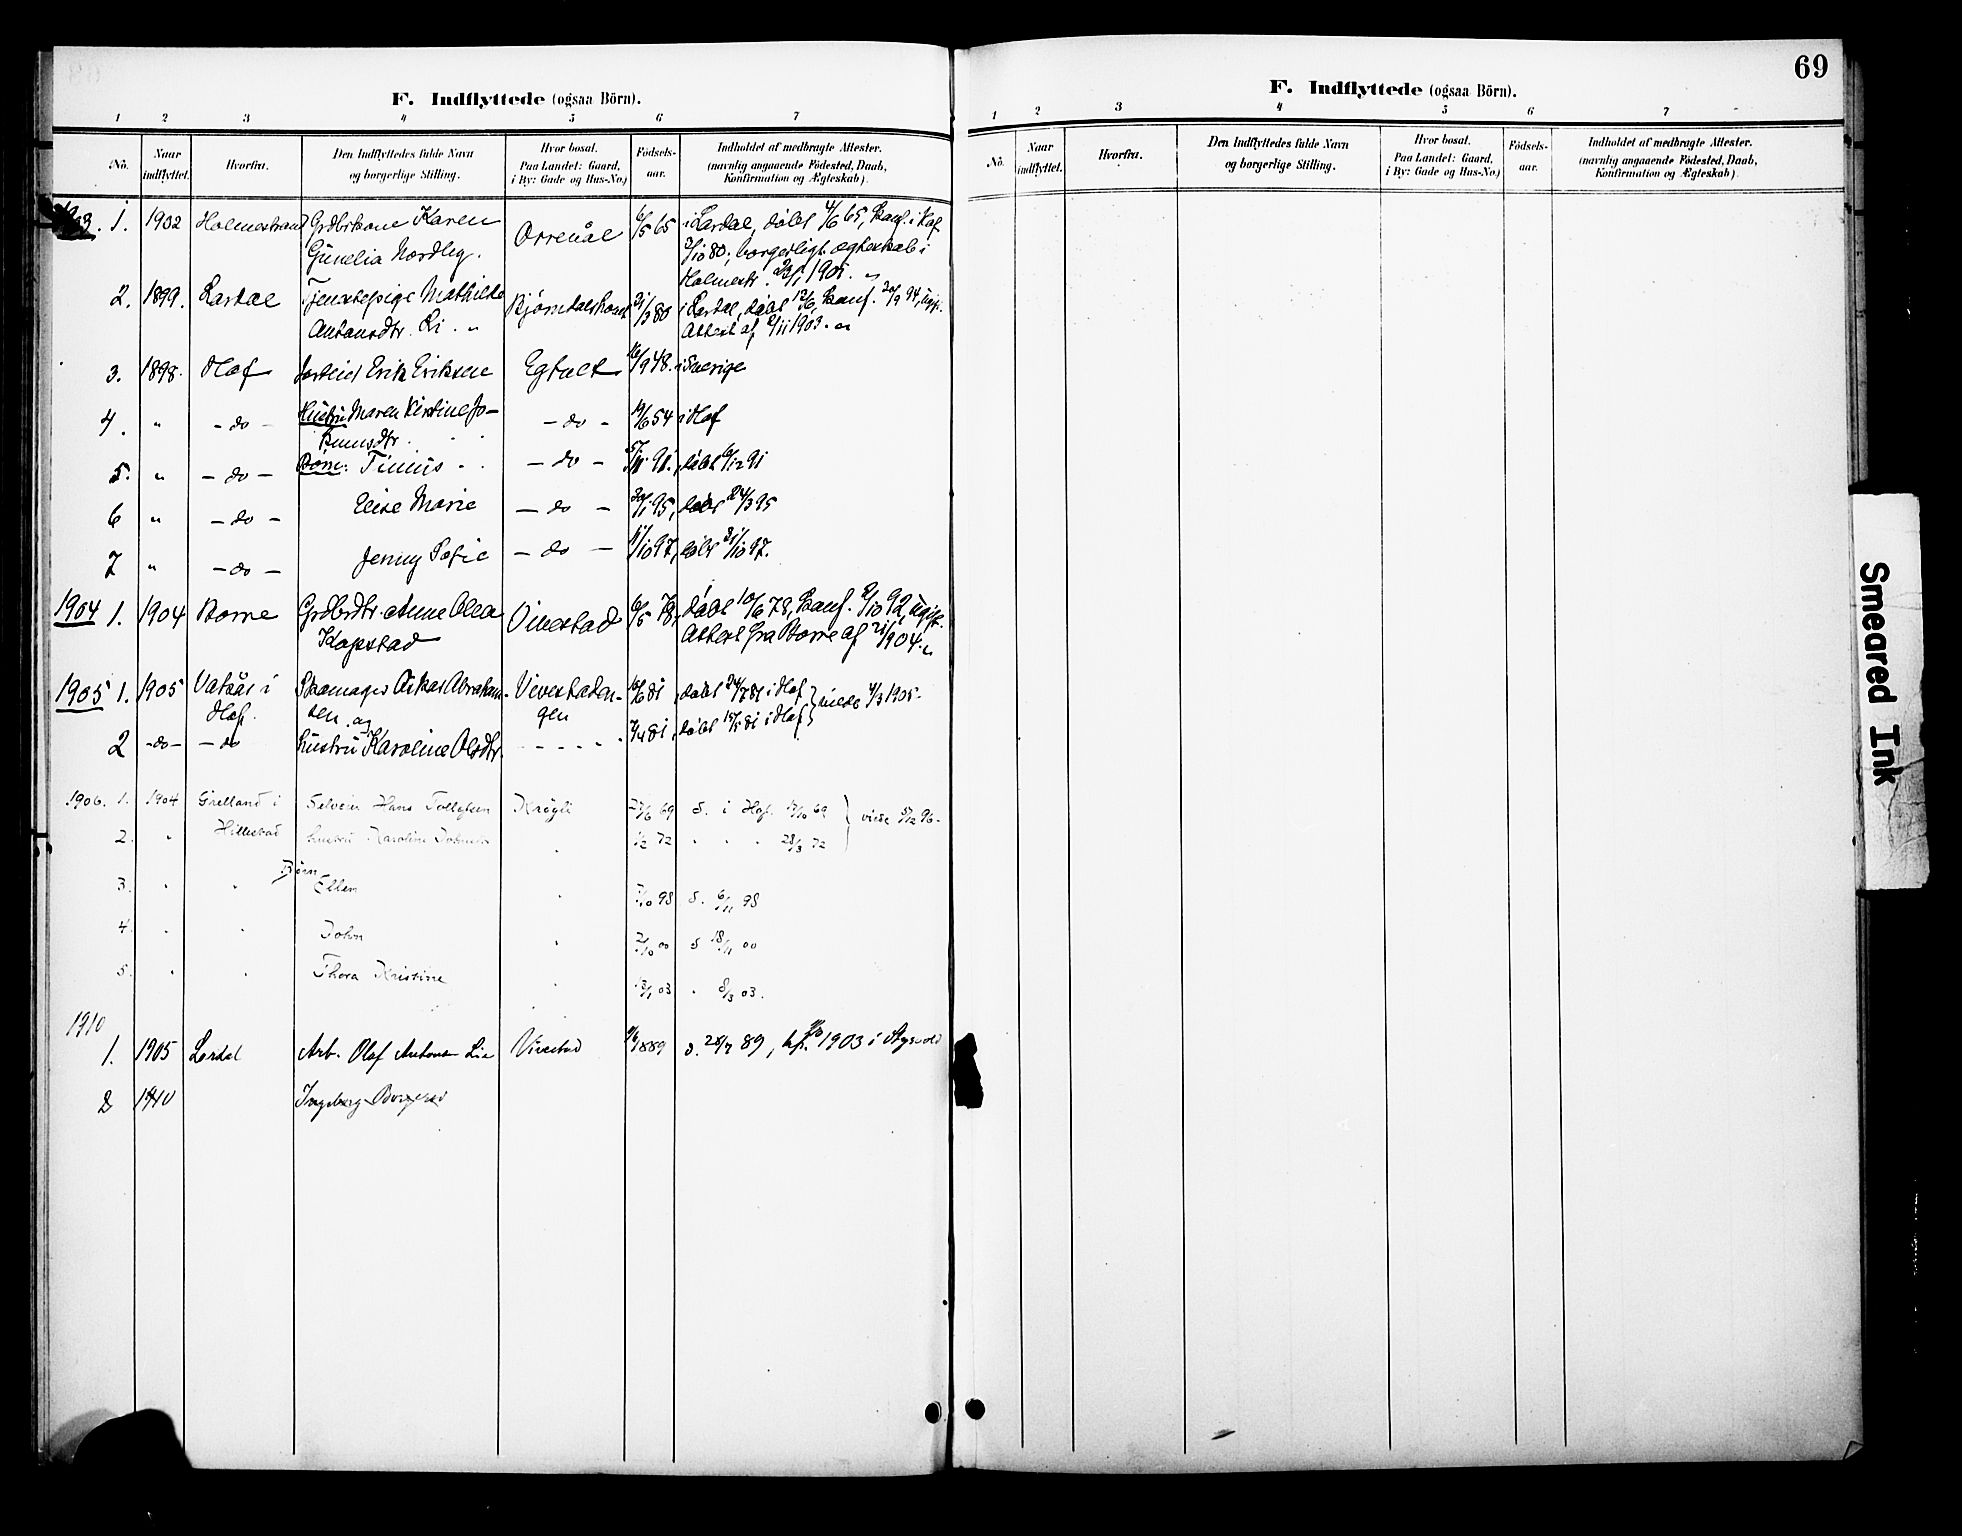 F. Indflyttede (ogsaa Börn).
1 2 3 4 5 6 7
No. Naar indflyttet. Hvorfra. Den Indflyttedes fulde Navn og borgerlige Stilling. Hvor bosat. Paa Landet: Gaard, i By: Gade og Hus-No.) Födsels-aar. Indholdet af medbragte Attester. (navnlig angaaende Födested, Daab, Konfirmation og Ægteskab).
1. 1902 Holmestrand Karen 6/5 65 i Lardal, döbt 4/6 65, Konf. i Hof
Gunelia Nordby. 80; borgerligt ægteskab i
Holmestr. 1901. "
2. 1899. Lardal Tjenestepige Mathilde 21/3 80 i Lardal, döbt 94, ugift.
Antonsdtr. Li. " Attest af 1903. "
3. 1898. Hof Erik Eriksen 16/9 48. i Sverige
4. " - do - Hustru Maren Kirstine Jo- - do - 54 i Hof
5. " - do - Börn: - do - 91, döbt 6/12 91
6 " - do - Elise Marie - do - 95, döbt 24/3 95
7 " - do - Jenny Sofie - do - 11/10 97, döbt 31/10 97.
1904 1. 1904 Borre Anne Olea Vivestad 6/5 78, döbt 10/6 78, Konf. 2/10 92, ugift.
Kopstad Attest fra Borre af 21/1 904. "
1905 1. 1905 i Skomager Abraham- Vivestaden- 81, döbt 24/7 81 i Hof } viede 4/3 1905.
Hof. sen og gen 81, döbt 15/5 81 i Hof
2 - do - - do hustru Karoline Olsdtr.
1906. 1. 1904 Grelland i Selveier Hans Tollefsen 69 d. i Hof. 17/10 69 } viede 5/12 96.
2. " Hillestad hustru Karoline 1/2 72 " " " 28/3 72
Börn
3. " " Ellen " 7/10 98 d. 6/11 98
4. " " John " 2/10 00 d 18/11 00
5. " " Thora Kristine " 13/1 03 " 8/3 03.
1910
1. 1905 Lardal Arb. Olaf Antonsen Lie Vivestad 1889 d. 28/7 89, kfr. 1903 i
2 1910 Ingeborg
69
F. Indflyttede (ogsaa Börn).
1 2 3 4 5 6 7
No. Naar indflyttet. Hvorfra. Den Indflyttedes fulde Navn og borgerlige Stilling. Hvor bosat. Paa Landet: Gaard, i By: Gade og Hus-No.) Födsels-aar. Indholdet af medbragte Attester. (navnlig angaaende Födested, Daab, Konfirmation og Ægteskab).
Smeared Ink